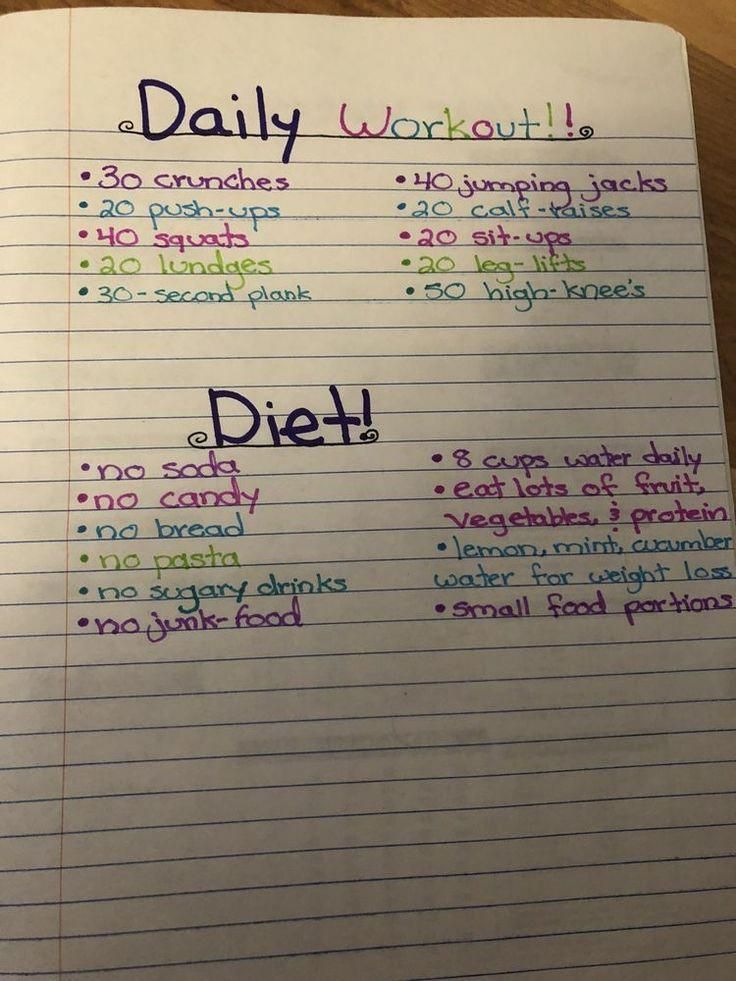 Daily Workout!!
• 30 crunches
• 20 push-ups
• 40 squats
• 20 lundges
• 30-second plank
• 40 jumping jacks
• 20 calf-raises
• 20 sit-ups
• 20 leg-lifts
• 50 high-knee's
Diet!
• no soda
• no candy
• no bread
• no pasta
• no sugary drinks
• no junk-food
• 8 cups water daily
• eat lots of fruit,
vegetables, & protein
• lemon, mint, cucumber
water for weight loss
• small food portions